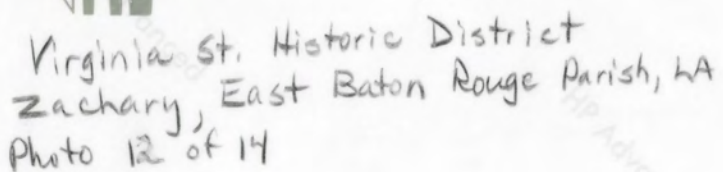 Virginia St. Historic District
Zachary, East Baton Rouge Parish, LA
Photo 12 of 14